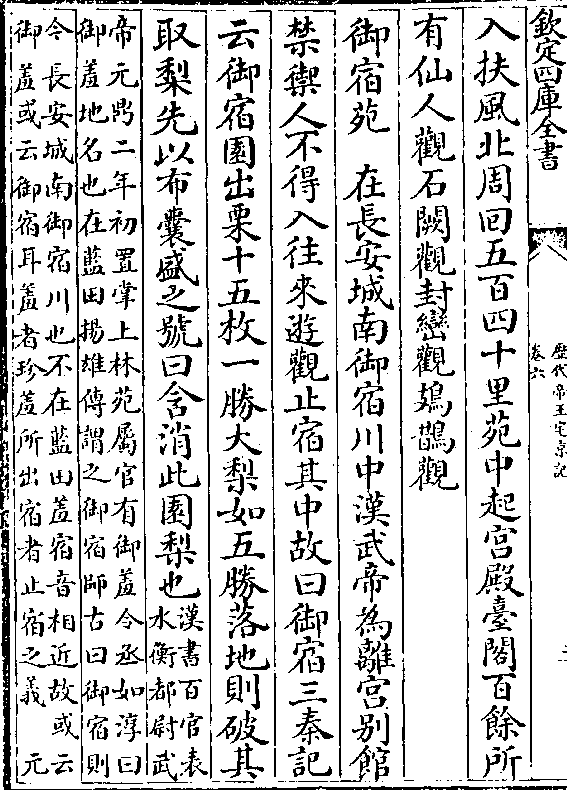 欽定四庫全書
歷代帝王宅京記
卷六
入扶風北周回五百四十里苑中起宫殿臺閣百餘所
有仙人觀石闕觀封巒觀鳷鵲觀
御宿苑　在長安城南御宿川中漢武帝為離宫别館
禁禦人不得入往來遊觀止宿其中故曰御宿三秦記
云御宿園出栗十五枚一勝大梨如五勝落地則破其
取梨先以布囊盛之號曰含消此園梨也漢書百官表
水衡都尉武
帝元鼎二年初置掌上林苑屬官有御羞令丞如淳曰
御羞地名也在藍田揚雄傳謂之御宿師古曰御宿則
令長安城南御宿川也不在藍田羞宿音相近故或云
御羞或云御宿耳羞者珍羞所出宿者止宿之義　元